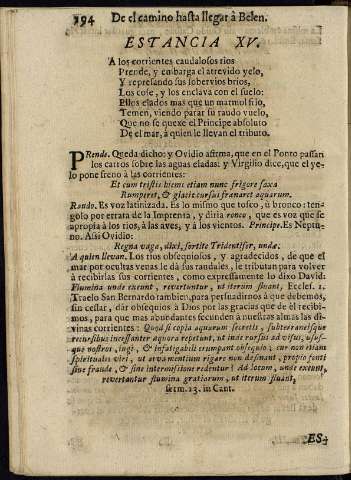 294 De el camino hasta llegar à Belen.
ESTANCIA XV.
A los corrientes caudalosos rios
Prende, y embarga el atrevido yelo,
Y represando sus sobervios brios,
Los cose, y los enclava con el suelo:
Ellos elados mas que un marmol frio,
Temen, viendo parar su raudo vuelo,
Que no se quexe el Principe absoluto
De el mar, à quien le llevan el tributo.
PRende. Queda dicho: y Ovidio afirma, que en el Ponto passan
los carros sobre las aguas eladas: y Virgilio dice, que el ye-
lo pone freno à las corrientes:
Et cum tristis hiems etiam nunc frigore saxa
Rumperet, & glacie cursus frænaret aquarum.
Raudo. Es voz latinizada. Es lo mismo que tosco; ù bronco: ten-
golo por errata de la Imprenta, y diria ronco, que es voz que se
apropia à los rios, à las aves, y à los vientos. Principe. Es Neptu-
no. Assi Ovidio:
Regna vaga, dixi, sortite Tridentifer, undæ.
A quien llevan. Los rios obsequiosos, y agradecidos, de que el
mar por ocultas venas le dà sus raudales, le tributan para volver
à recibirlas sus corrientes, como expressamente lo dixo David:
Flumina unde exeunt, revertuntur, ut iterum fluant, Eccles. 1.
Traelo San Bernardo tambien, para persuadirnos à que debemos,
sin cessar, dàr obsequios à Dios por las gracias que de èl recibi-
mos, para que mas abundantes fecunden à nuestras almas las di-
vinas corrientes: Quod si copia aquarum secretis, subterraneisque
recursibus incessanter æquora repetunt, ut inde rursus ad visus, usus-
que nostros, jugi, & infatigabili erumpant obsequio; cur non etiam
spirituales rivi, ut arva mentium rigare non desinant, proprio fonti
sine fraude, & sine intermissione redentur? Ad locum, unde exeunt,
revertantur flumina gratiarum, ut iterum fluant,
serm. 13. in Cant.
ES-